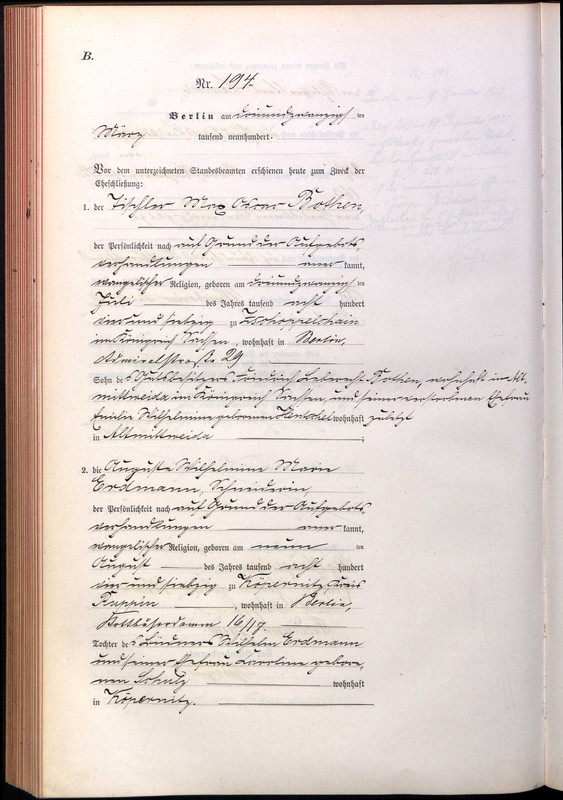 B.
Nr. 194.
Berlin am dreiundzwanzigsten
März tausend neunhundert.
Vor dem unterzeichneten Standesbeamten erschienen heute zum Zweck der
Eheschließung:
1. der Tischler Max Oscar Rothen,
der Persönlichkeit nach auf Grund der Aufgebots
verhandlungen anerkannt,
evangelischer Religion, geboren am dreiundzwanzigsten
Juli des Jahres tausend acht hundert
vier und siebzig zu Zschoppelshain
im Königreich Sachsen, wohnhaft in Berlin,
Admiralstraße 29
Sohn des Gutsbesitzers Friedrich Leberecht Rothen, wohnhaft in Alt
mittweida im Königreich Sachsen, und seiner verstorbenen Ehefrau
Emilie Wilhelmine geborenen Hentschel wohnhaft zuletzt
in Altmittweida;
2. die Auguste Wilhelmine Marie
Erdmann, Schneiderin,
der Persönlichkeit nach auf Grund der Aufgebots
verhandlungen anerkannt,
evangelischer Religion, geboren am neunten
August des Jahres tausend acht hundert
vier und siebzig zu Köpernitz, Kreis
Ruppin, wohnhaft in Berlin,
Kottbuserdamm 16/17.
Tochter des Büdners Wilhelm Erdmann
und seiner Ehefrau Karoline gebore,
nen Schulz wohnhaft
in Köpernitz.